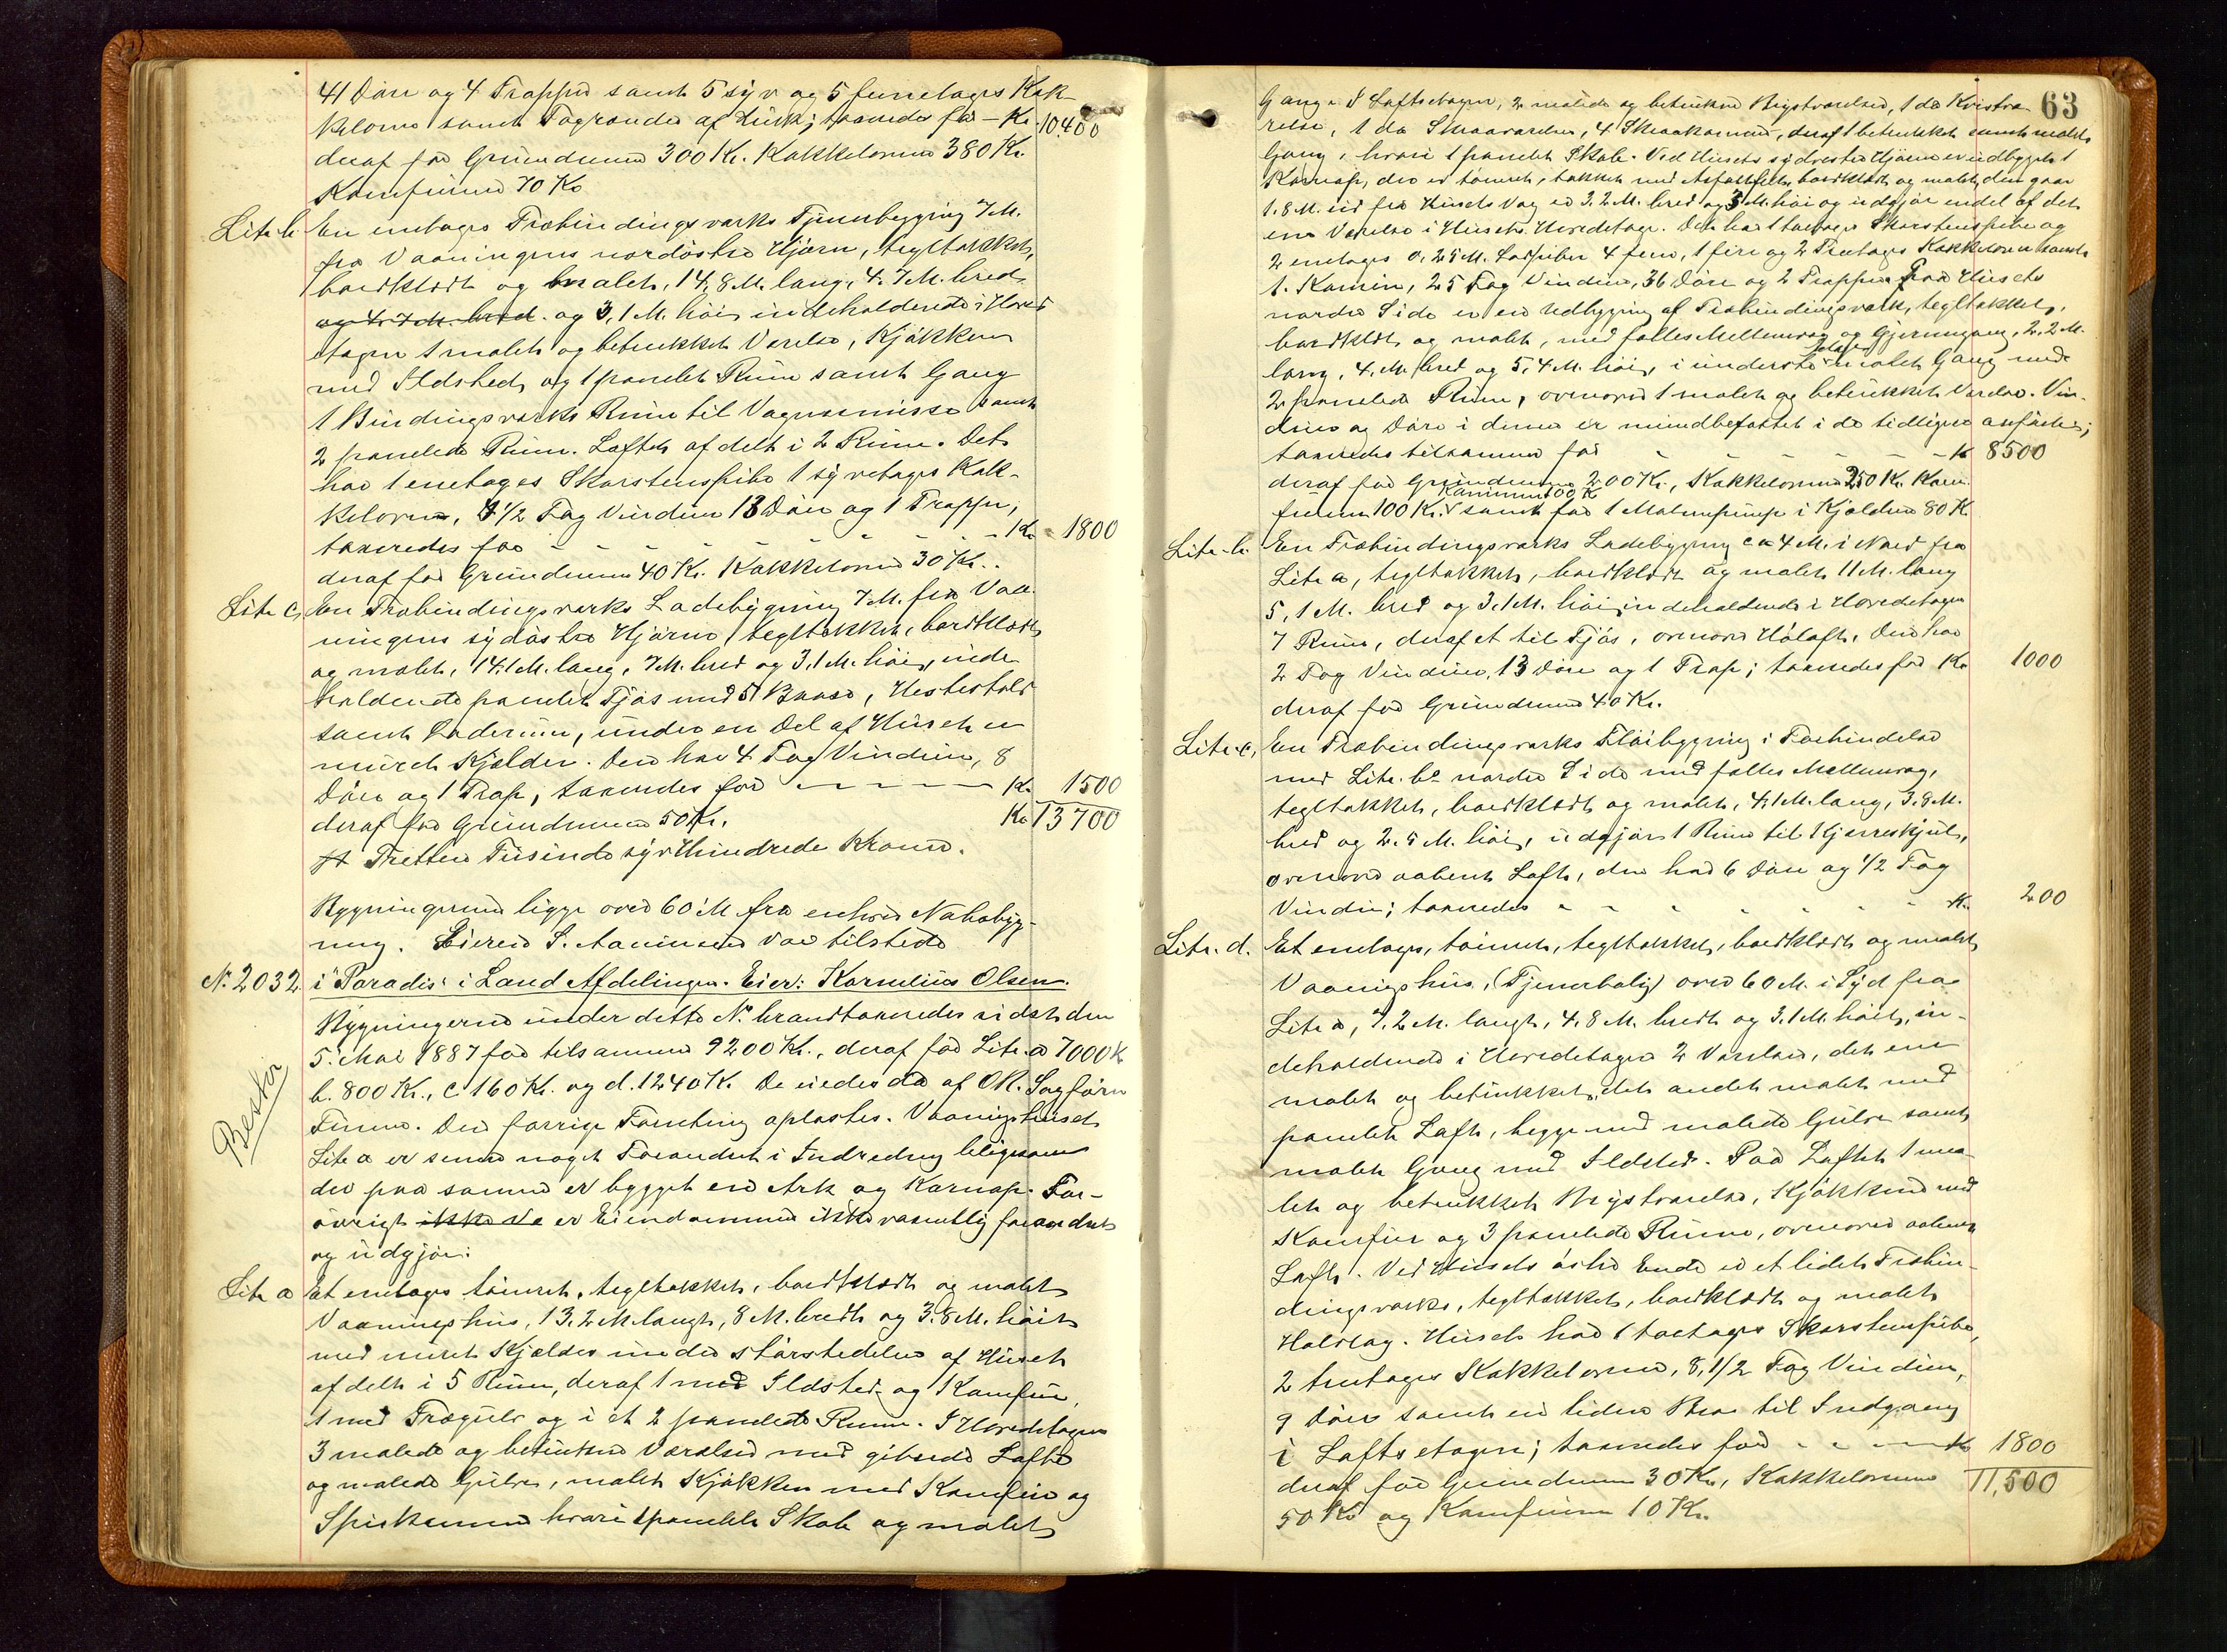 41 Döre og 4 Trapper samt 5 syv og 5 femetages Kak-
kelovne samt Tagrender af Zink; taxeredes for - Kr. 10.400
deraf for Grundmuren 300 Kr. Kakkelovnene 380 Kr.
Komfurene 70 Kr.
Litr. b. En enetages Træbindingsværks Tjenerbygning 7 M.
fra Vaaningens nordöstre Hjörne, tegltækket,
bordklædt og malet, 14,8 M. lang, 4,7 M. bred
og 4,7 M. bred. og 3,1 M. höi, indeholdende i Hoved-
etagen 1 malet og betrukket Værelse, Kjökken
med Ildsted, og 1 panelet Rum samt Gang
1 Bindingsværks Rum til Vognremisse samt
2 panelede Rum. Loftet afdelt i 2 Rum. Det
har 1 enetages Skorstenspibe 1 syvetages Kak-
kelovn, 3 1/2 Fag Vinduer 13 Döre og 1 Trappe;
taxeredes for - - - - - - - Kr. 1800
deraf for Grundmuren 40 Kr. Kakkelovnen 30 Kr.
Litr. c, En Træbindingsværks Ladebygning 7 M. fra Vaa-
ningens sydöstre Hjörne, tegltækket, bordklædt
og malet, 14,1 M. lang, 7 M. bred og 3,1 M. höi, inde
holdende panelet Fjös med 5 Baase, Hestestald
samt Laderum, under en Del af Huset er
muret Kjælder. Den har 4 Fag Vinduer, 8
Döre og 1 Trap, taxeredes for - - - - Kr. 1500
deraf for Grundmuren 50 Kr. Kr. 13700
Tretten Tusinde syv Hundrede Kroner.
Bygningerne ligge over 60 M fra enhver Nabobyg-
ning. Eieren S. var tilstede
No. 2032 i "Paradis" i Land Afdelingen. Eier: Kornelius Olsen.
Bygningerne under dette No. brandtaxeredes sidst den
5. Mai 1887 for tilsammen 9200 Kr., deraf for Litr. a 7000 K
b. 800 Kr., c 160 Kr. og d. 1240 Kr. De eiedes da af OR. Sagförer
Finne. Den forrige Forretning oplæstes. Vaaningshuset
Litr a er senere noget Forandret i Indredning ligesom
der paa samme er bygget en Ark og Karnap. For-
övrigt ikke ve er Eiendommene ikke væsentlig forandret
og udgjör:
Bestaar
Litr a Et enetages tömret, tegltækket, bordklædt og malet
Vaaningshus, 13,2 M. langt, 8 M. bredt og 3,8 M. höit
med muret Kjælder under störstedelen af Huset
afdelt i 5 Rum, deraf 1 med Ildsted og 1 Komfur,
1 med Trægulv og i et 2 panelede Rum. I Hovedetagen
3 malede og betrukne Værelser med gibsede Lofte
og malede Gulve, malet Kjökken med Komfur og
Spiskammer hvori 1 panelet Skab og malet
63
Gang. I Loftsetagen, 2 malede og betrukne Bryst­værelser, 1 do Kvistvæ-
relse, 1 do Skraaværelse, 4 Skraakammere, deraf 1 betrukket samt malet
Gang, hvori 1 panelet Skab. Ved Husets sydvestre Hjörne er udbygget 1
Karnap, der er tömret, tækket med Asfaltfilt, bordklædt og malet, den gaar
1,8 M. ud fra Husets Væg er 3,2 M. bred og 3 M. höi og udgjör endel af det
ene Værelse i Husets Hovedetage. Det har 1 toetages Skorstenspibe og
2 enetages 0,25 M. Luftpiber 4 fem, 1 fire og 2 Treetages Kakkelovne samt
1. Kamin, 25 Fag Vinduer, 36 Döre og 2 Trapper. Paa Husets
nordre Side er en Udbygning af Træbindingsværk, tegltækket,
bordklædt og malet, med fælles Mellemvæg og Gjennemgang, 2,2 M.
lang, 4. M. bred og 5,4 M. höi, i underste Etage malet Gang med
2 panelede Rum, ovenover 1 malet og betrukket Værelse. Vin-
duer og Döre i denne er medbefattet i de tidligere anförte;
taxeredes tilsammen for - - - - - - K 8500
deraf for Grundmuren 200 Kr., Kakkelovnene 250 Kr. Kom-
furene 100 Kr. Kaminen 100 K samt for 1 Malmpumpe i Kjælderen 80 K
Litr. b. En Træbindingsværks Ladebygning ca 4 M. i Nord fra
Litr a, tegltækket, bordklædt og malet 11 M. lang
5,1 M. bred og 3,1 M. höi, indeholdende i Hovedetagen
7 Rum, deraf et til Fjös, ovenover Höloft. Den har
2 Fag Vinduer, 13 Döre og 1 Trap; taxeredes for Kr 1000
deraf for Grundmuren 40 Kr.
Litr. c, En Træbindingsværks Flöibygning i Forbindelse
med Litr. bs nordre Side med fælles Mellemvæg,
tegltækket, bordklædt og malet, 4,1 M. lang, 3,8 M.
bred og 2,5 M. höi, udgjör 1 Rum til Kjærreskjul,
ovenover aabent Loft, den har 6 Döre og 1/2 Fag
Vindu; taxeredes - - - - - - - K. 200
Litr. d. Et enetages, tömret, tegltækket, bordklædt og malet
Vaaningshus, (Tjenerbolig) over 60 M. i Syd fra
Litr a, 7,2 M. langt, 4,8 M. bredt og 3,1 M. höit, in-
deholdende i Hovedetagen 2 Værelser, det ene
malet og betrukket, det andet malet med
panelet Loft, begge med malede Gulve samt
malet Gang med Ildsted. Paa Loftet 1 ma-
let og betrukket Brystværelse, Kjökken med
Komfur og 3 panelede Rum, ovenover aabent
Loft. Ved Husets östre Ende er et lidet Træbin-
dingsværks, tegltækket, bordklædt og malet
Halvtag. Huset har 1 toetages Skorstenspibe,
2 treetages Kakkelovne, 8 1/2 Fag Vinduer,
9 Döre samt en liden Bro til Indgang
i Loftsetagen; taxeredes for - - - Kr 1800
deraf for Grundmuren 30 Kr., Kakkelovnene 11,500
50 Kr og Komfuren 10 Kr.